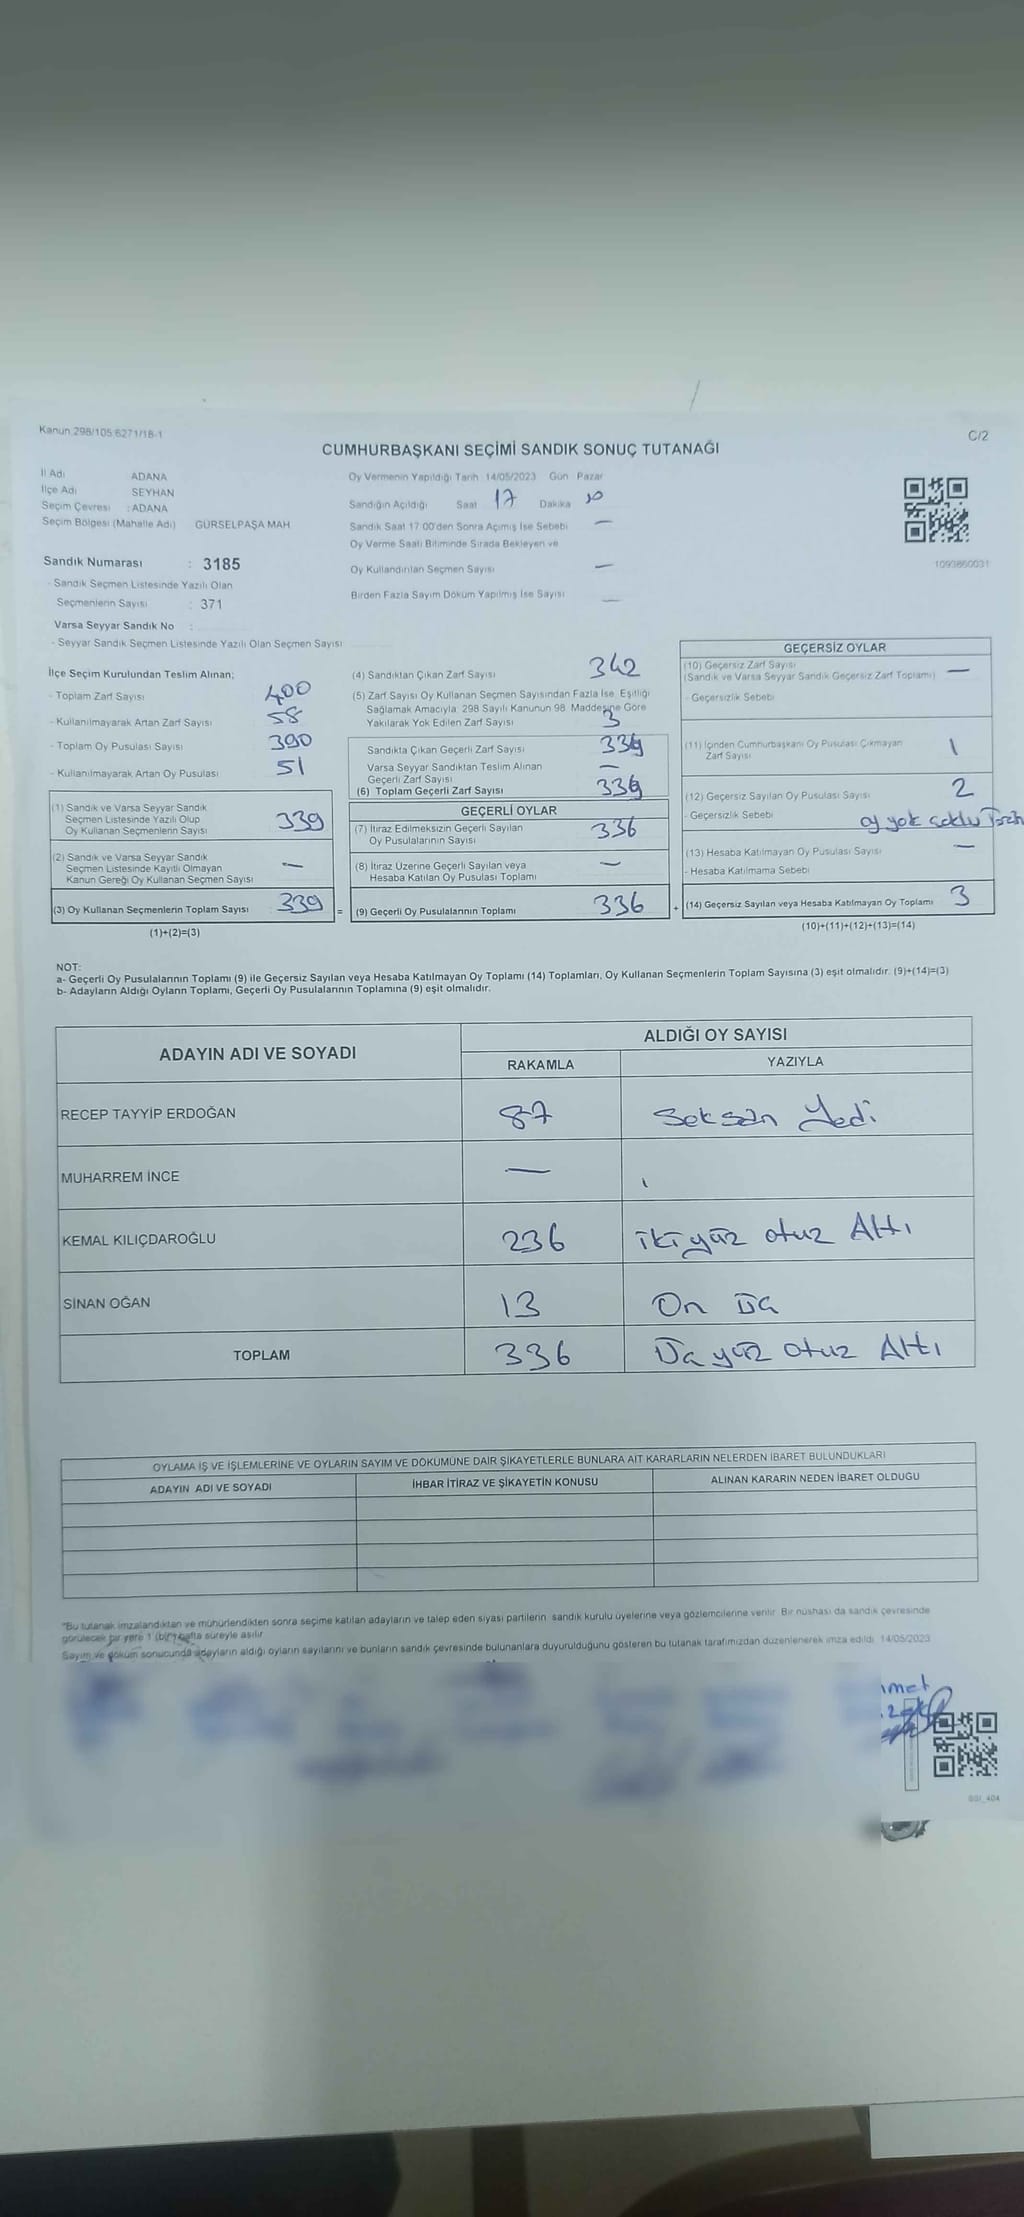 Kanun 298/105 6271/18-1
C/2
CUMHURBAŞKANI SEÇİMİ SANDIK SONUÇ TUTANAĞI
İl Adı ADANA
İlçe Adı SEYHAN
Seçim Çevresi : ADANA
Seçim Bölgesi (Mahalle Adı) GÜRSELPAŞA MAH
Sandık Numarası : 3185
- Sandık Seçmen Listesinde Yazılı Olan
Seçmenlerin Sayısı : 371
Varsa Seyyar Sandık No :
- Seyyar Sandık Seçmen Listesinde Yazılı Olan Seçmen Sayısı
Oy Vermenin Yapıldığı Tarih 14/05/2023 Gün Pazar
Sandığın Açıldığı Saat 17 Dakika
Sandık Saat 17.00'den Sonra Açımış İse Sebebi —
Oy Verme Saati Bitiminde Sırada Bekleyen ve
Oy Kullandırılan Seçmen Sayısı —
Birden Fazla Sayım Döküm Yapılmış İse Sayısı —
1093860031
İlçe Seçim Kurulundan Teslim Alınan;
- Toplam Zarf Sayısı 400
- Kullanılmayarak Artan Zarf Sayısı 58
- Toplam Oy Pusulası Sayısı 390
- Kullanılmayarak Artan Oy Pusulası 51
(1) Sandık ve Varsa Seyyar Sandık
Seçmen Listesinde Yazılı Olup
Oy Kullanan Seçmenlerin Sayısı 339
(2) Sandık ve Varsa Seyyar Sandık
Seçmen Listesinde Kayıtlı Olmayan
Kanun Gereği Oy Kullanan Seçmen Sayısı —
(3) Oy Kullanan Seçmenlerin Toplam Sayısı 339
(1)+(2)=(3)
(4) Sandıktan Çıkan Zarf Sayısı 342
(5) Zarf Sayısı Oy Kullanan Seçmen Sayısından Fazla İse, Eşitliği
Sağlamak Amacıyla, 298 Sayılı Kanunun 98. Maddesine Göre
Yakılarak Yok Edilen Zarf Sayısı 3
Sandıkta Çıkan Geçerli Zarf Sayısı 339
Varsa Seyyar Sandıktan Teslim Alınan
Geçerli Zarf Sayısı —
(6) Toplam Geçerli Zarf Sayısı 339
GEÇERLİ OYLAR
(7) İtiraz Edilmeksizin Geçerli Sayılan
Oy Pusulalarının Sayısı 336
(8) İtiraz Üzerine Geçerli Sayılan veya
Hesaba Katılan Oy Pusulası Toplamı —
= (9) Geçerli Oy Pusulalarının Toplamı 336
GEÇERSİZ OYLAR
(10) Geçersiz Zarf Sayısı
(Sandık ve Varsa Seyyar Sandık Geçersiz Zarf Toplamı) —
- Geçersizlik Sebebi
(11) İçinden Cumhurbaşkanı Oy Pusulası Çıkmayan
Zarf Sayısı 1
(12) Geçersiz Sayılan Oy Pusulası Sayısı 2
- Geçersizlik Sebebi oy yok
(13) Hesaba Katılmayan Oy Pusulası Sayısı —
- Hesaba Katılmama Sebebi
+ (14) Geçersiz Sayılan veya Hesaba Katılmayan Oy Toplamı 3
(10)+(11)+(12)+(13)=(14)
NOT:
a- Geçerli Oy Pusulalarının Toplamı (9) ile Geçersiz Sayılan veya Hesaba Katılmayan Oy Toplamı (14) Toplamları, Oy Kullanan Seçmenlerin Toplam Sayısına (3) eşit olmalıdır. (9)+(14)=(3)
b- Adayların Aldığı Oyların Toplamı, Geçerli Oy Pusulalarının Toplamına (9) eşit olmalıdır.
ADAYIN ADI VE SOYADI
ALDIĞI OY SAYISI
RAKAMLA YAZIYLA
RECEP TAYYİP ERDOĞAN 87 Seksan Yedi
MUHARREM İNCE —
KEMAL KILIÇDAROĞLU 236 ikiyüz otuz Altı
SİNAN OĞAN 13 On Üç
TOPLAM 336 Üç yüz otuz Altı
OYLAMA İŞ VE İŞLEMLERİNE VE OYLARIN SAYIM VE DÖKÜMÜNE DAİR ŞİKAYETLERLE BUNLARA AİT KARARLARIN NELERDEN İBARET BULUNDUKLARI
ADAYIN ADI VE SOYADI İHBAR İTİRAZ VE ŞİKAYETİN KONUSU ALINAN KARARIN NEDEN İBARET OLDUĞU
"Bu tutanak imzalandıktan ve mühürlendikten sonra seçime katılan adayların ve talep eden siyasi partilerin sandık kurulu üyelerine veya gözlemcilerine verilir. Bir nüshası da sandık çevresinde
görülecek bir yere 1 (bir) hafta süreyle asılır.
Sayım ve döküm sonucunda adayların aldığı oyların sayılarını ve bunların sandık çevresinde bulunanlara duyurulduğunu gösteren bu tutanak tarafımızdan düzenlenerek imza edildi. 14/05/2023